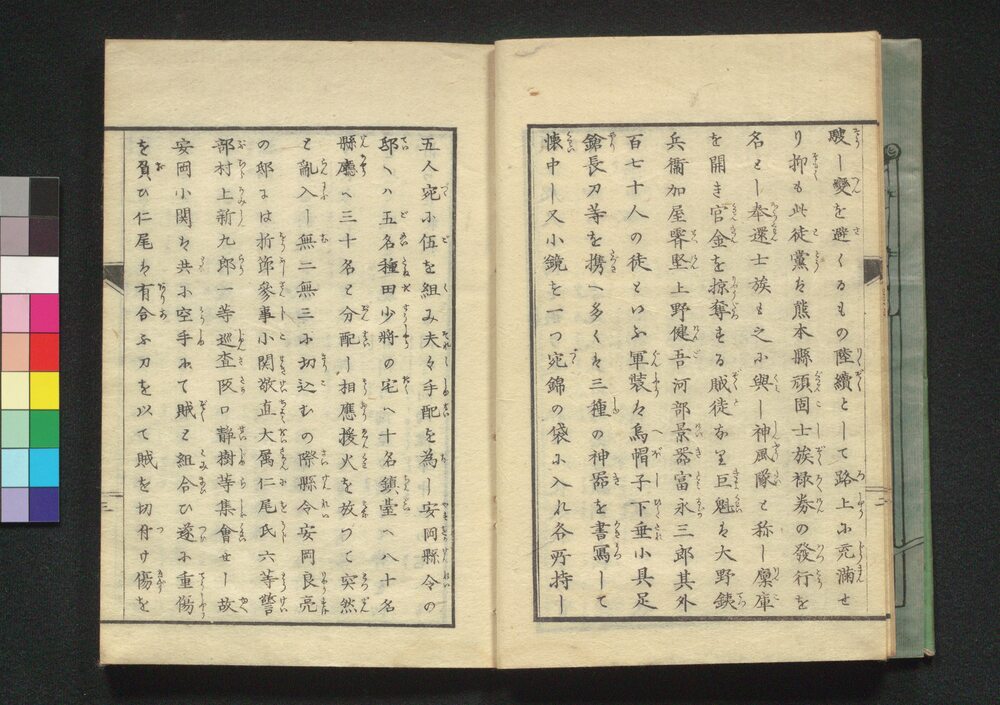 駿し變を避くるもの陸續として路上に充滿せ
り抑も此徒黨は熊本縣頑固士族祿券の發行を
名とし奉還士族も之に與し神風隊と称し廩庫
を開き官金を掠奪する賊徒なり巨魁は大野鉄
兵衞加屋霽堅上野健吾河部景器富永三郎其外
百七十人の徒といふ軍裝は烏帽子下垂小具足
鎗長刀等を携へ多くは三種の神器を書寫して
懐中し又小鏡を一つ宛錦の袋に入れ各所持し
五人宛に伍を組み夫々手配を為し安岡縣令の
邸へハ五名種田少將の宅へ十名鎮臺へ八十名
縣廳へ三十名と分配し相應援火を放つて突然
と亂入し無二無三に切込むの際縣令安岡良亮
の邸には折節參事小関敬直大属仁尾氏六等警
部村上新九郎一等巡査阪口靜樹等集會せし故
安岡小関は共に空手にて賊と組合ひ遂に重傷
を負ひ仁尾は有合ふ刀を以て賊を切付け傷を